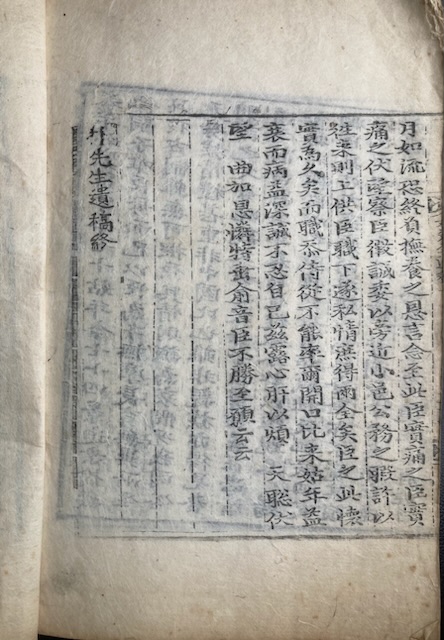 月如流恐終負撫養之恩言念至此臣實痛之臣實
痛之伏望察臣微誠委以旁近小邑公務之暇許以
往来則上供臣職下遂私情庶得兩全矣臣之此懷
實為久矣而職忝侍從不能率爾開口比来姑年益
衰而病益深誠不忍自已玆露心肝以煩 天聡伏
望 曲加恩憐特垂兪音臣不勝至願云云
朴先生遺稿終